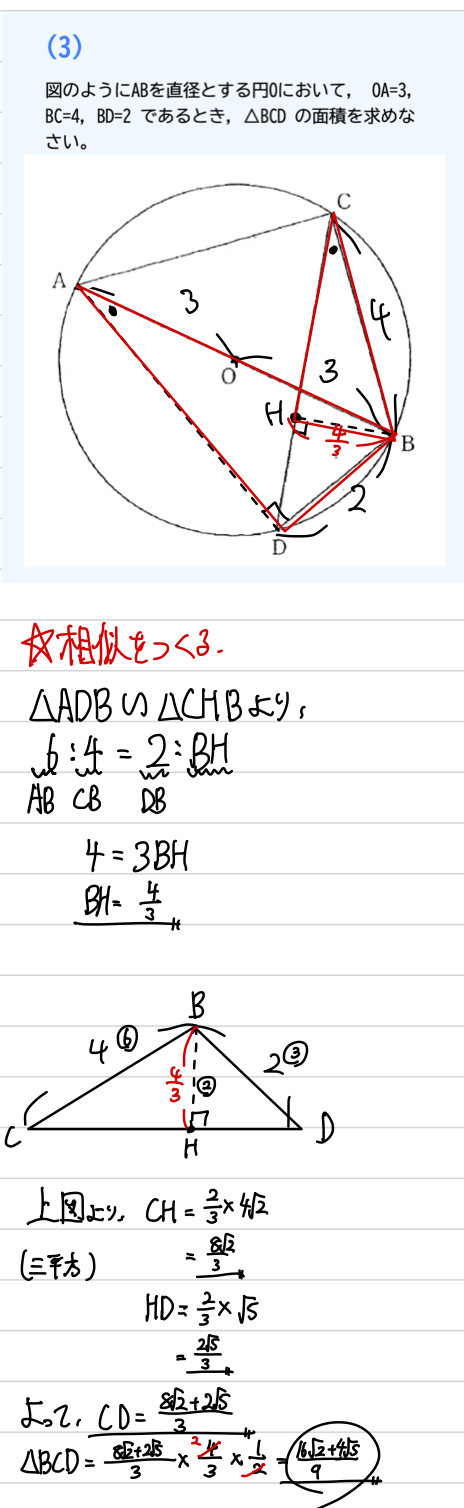 (3)
図のようにABを直径とする円Oにおいて, OA=3,
BC=4, BD=2 であるとき, △BCD の面積を求めな
さい。
C
A
3
4
O
3
H
4/3
B
2
D
☆相似をつくる.
△ADB∽△CHBより,
6:4=2:BH
AB CB DB
4=3BH
BH=4/3
B
4⑥
2③
4/3
②
C
H
D
上図より, CH=2/3×4√2
(三平方)
=8√2/3
HD=2/3×√5
=2√5/3
よって, CD=8√2+2√5/3
△BCD=8√2+2√5/3×4/3×1/2=16√2+4√5/9
2